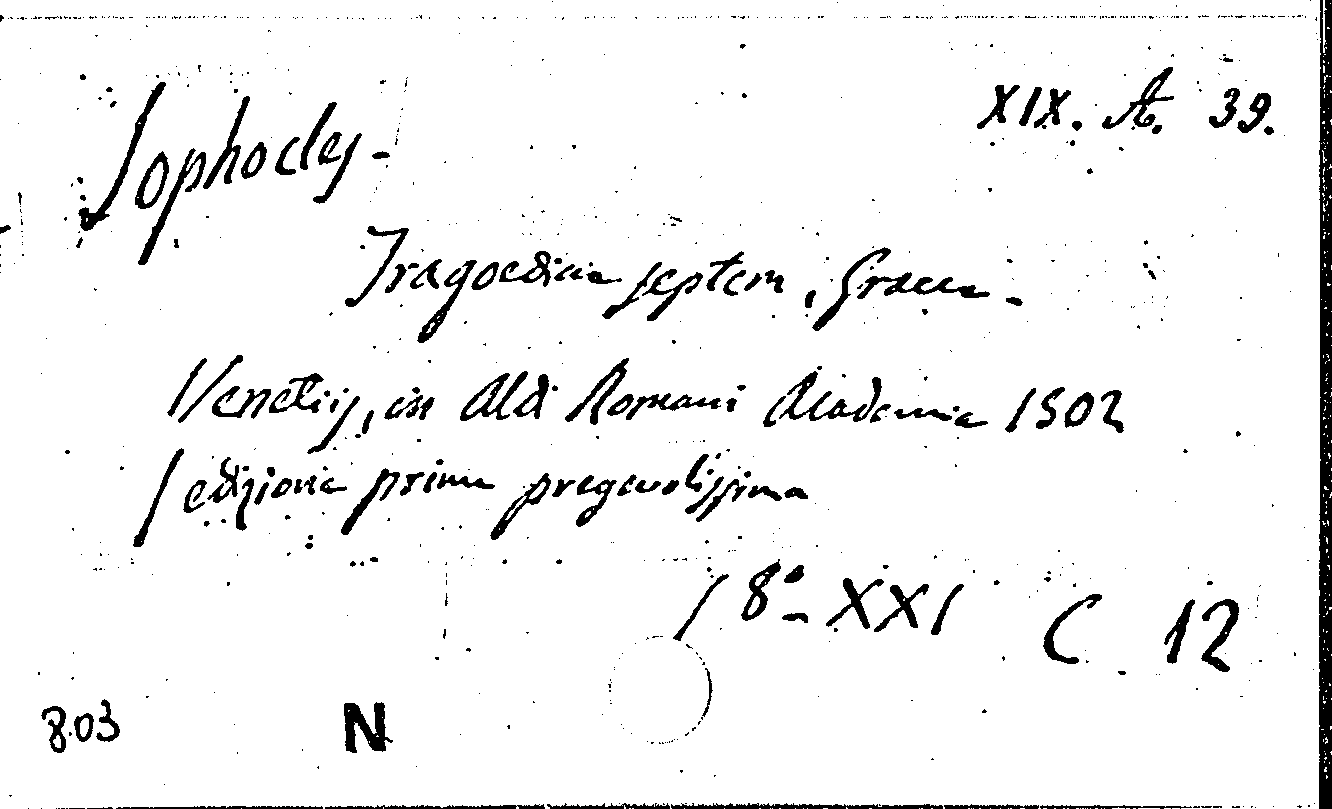 XIX. A. 39.
Sophocles -
Tragoediae septem, Graece -
Venetiis, in Aldi Romani Academia 1502
/ edizione prima pregevolissima
/ 8º- XXI C 12
803 N